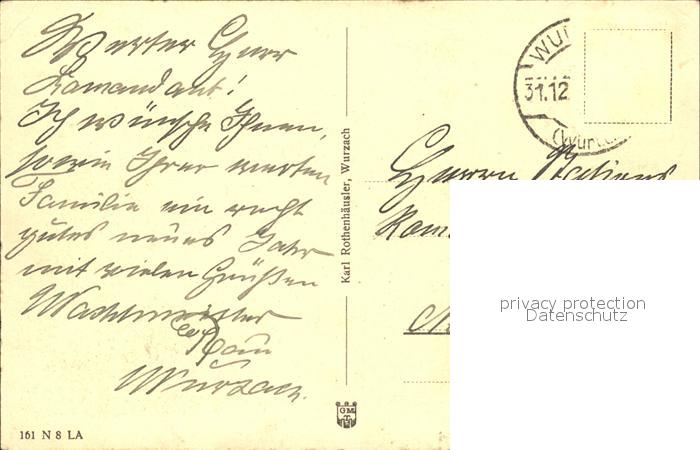 Werter Herr
Komandant!
Ich wünsche Ihnen,
sowie Ihrer werten
Familie ein recht
gutes neues Jahr
mit vielen Grüßen
Wachtmeister
Wurzach.
161 N 8 LA
Karl Rothenhäusler, Wurzach
GM
WU
31.12
(Würt
Herrn Stations
Kom
privacy protection
Datenschutz